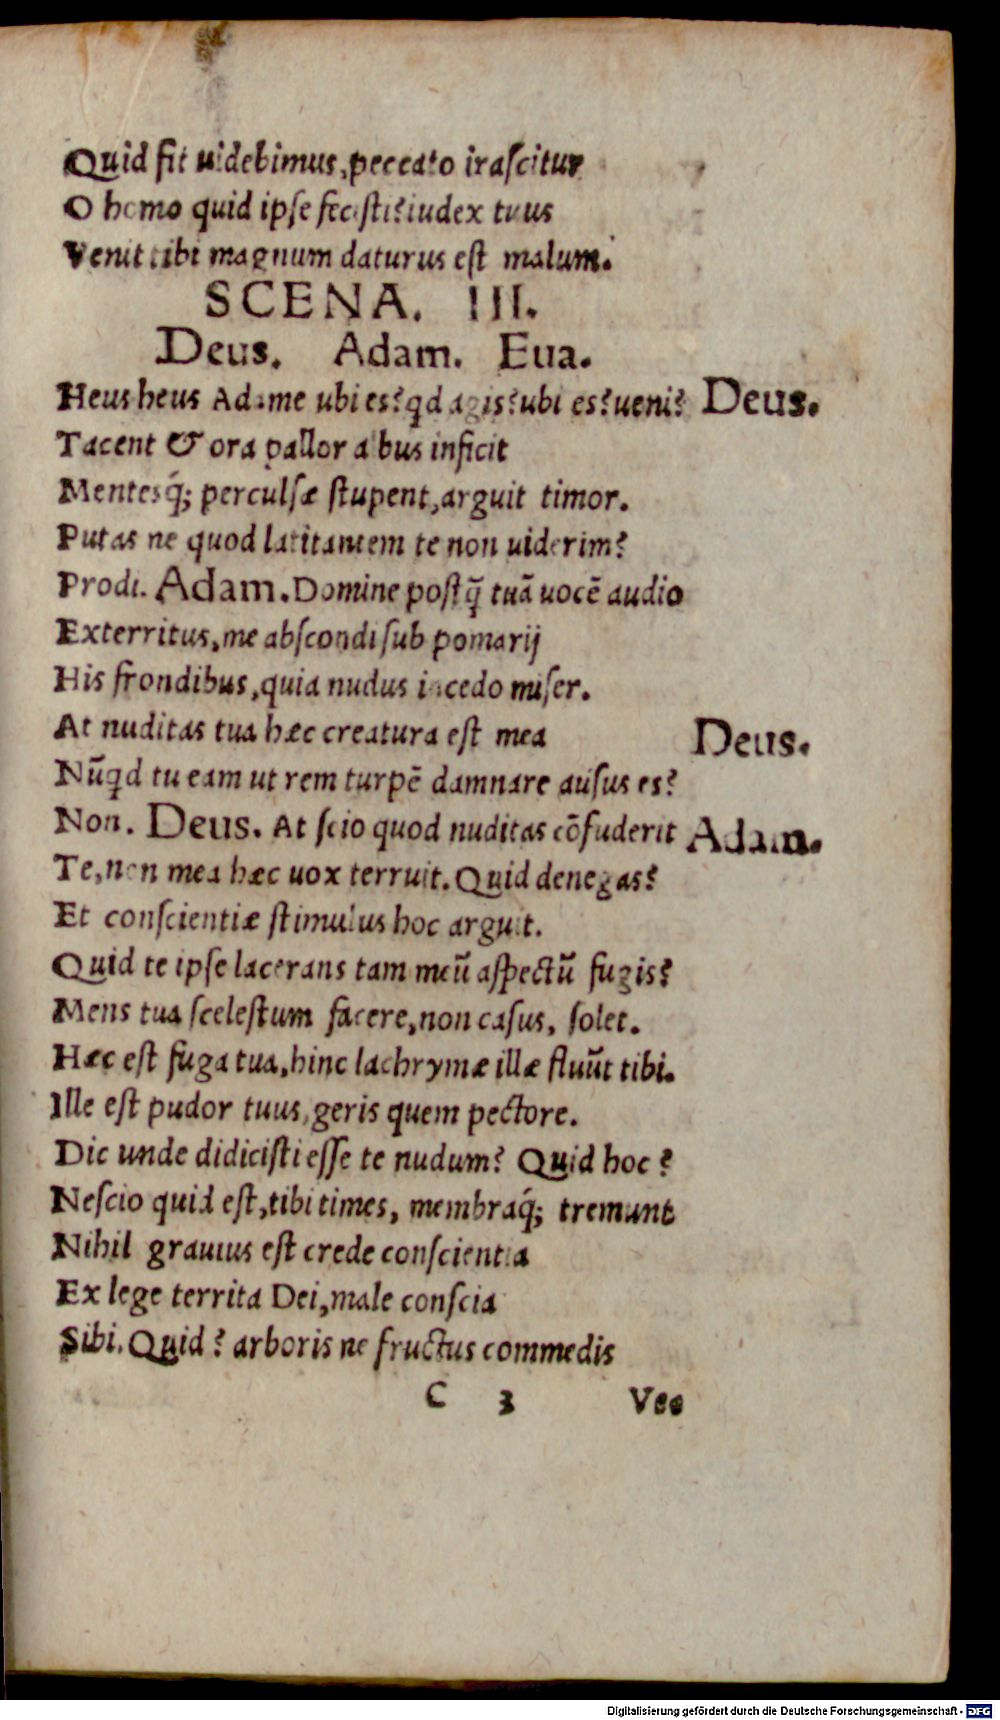 Quid fit uidebimus, peccato irascitur
O homo quid ipse fecisti? iudex tuus
Venit tibi magnum daturus est malum.
SCENA. III.
Deus. Adam. Eua.
Heus heus Adame ubi es? qd agis? ubi es? ueni? Deus.
Tacent & ora pallor a bus inficit
Mentesq́; perculsæ stupent, arguit timor.
Putas ne quod latitantem te non uiderim?
Prodi. Adam. Domine postq̃ tuã uocẽ audio
Exterritus, me abscondi sub pomarij
His frondibus, quia nudus incedo miser.
At nuditas tua hæc creatura est mea Deus.
Nũqd tu eam ut rem turpẽ damnare ausus es?
Non. Deus. At scio quod nuditas cõfuderit Adam.
Te, non mea hæc uox terruit. Quid denegas?
Et conscientiæ stimulus hoc arguit.
Quid te ipse lacerans tam meũ aspectũ fugis?
Mens tua scelestum facere, non casus, solet.
Hæc est fuga tua, hinc lachrymæ illæ fluũt tibi.
Ille est pudor tuus, geris quem pectore.
Dic unde didicisti esse te nudum? Quid hoc?
Nescio quid est, tibi times, membraq́; tremunt
Nihil grauius est crede conscientia
Ex lege territa Dei, male conscia
Sibi. Quid? arboris ne fructus commedis
C 3 Vee
Digitalisierung gefördert durch die Deutsche Forschungsgemeinschaft - DFG